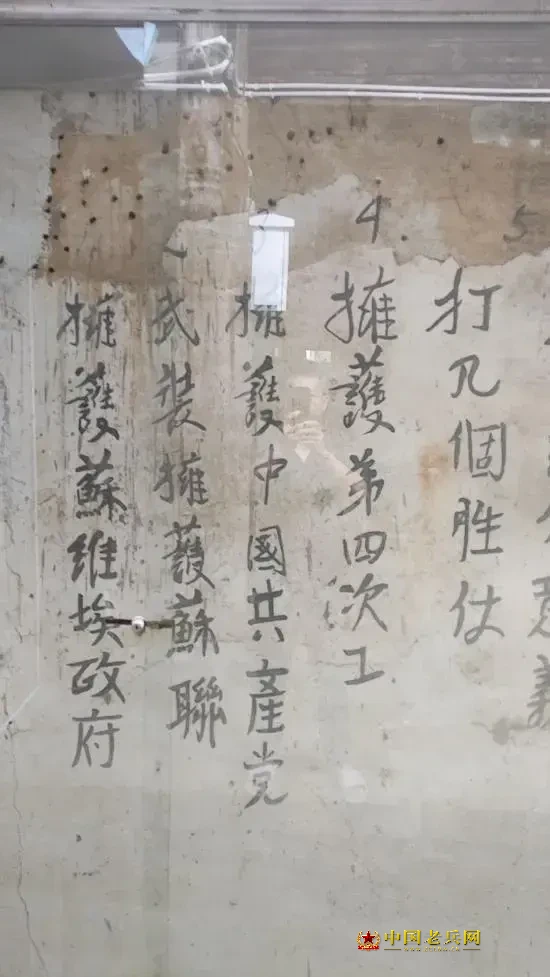 擁護蘇維埃政府
武裝擁護蘇聯
3 擁護中國共產党
4 擁護第四次工
打几個胜仗
5
義
中国老兵网